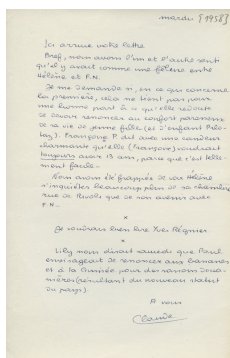 mardu [1958]
Ici arrive votre lettre
Bref, nous avons l'un et l'autre senti
qu'il y avait comme une fêlure entre
Hélène et F.N.
Je me demande si, en ce qui concerne
la première, cela ne tient pas pour
une bonne part à ce qu'elle redoute
de devoir renoncer au confort paresseux
de sa vie de jeune fille (et d'enfant
). Françoise P. dit avec une candeur
charmante qu'elle (Françoise) voudrait
toujours avoir 13 ans, parce que c'est telle-
ment facile.
Nous avons été frappés de voir Hélène
s'inquiéter beaucoup plus de sa chambre
rue de Rivoli que de son avenir avec
F.N.
×
Je voudrais bien lire Yves Régnier
×
Lily nous disait samedi que Paul
envisageait de renoncer aux bananes
et à la Guinée pour des raisons doua-
nières (résultant du nouveau statut
du pays)
A vous
Claude